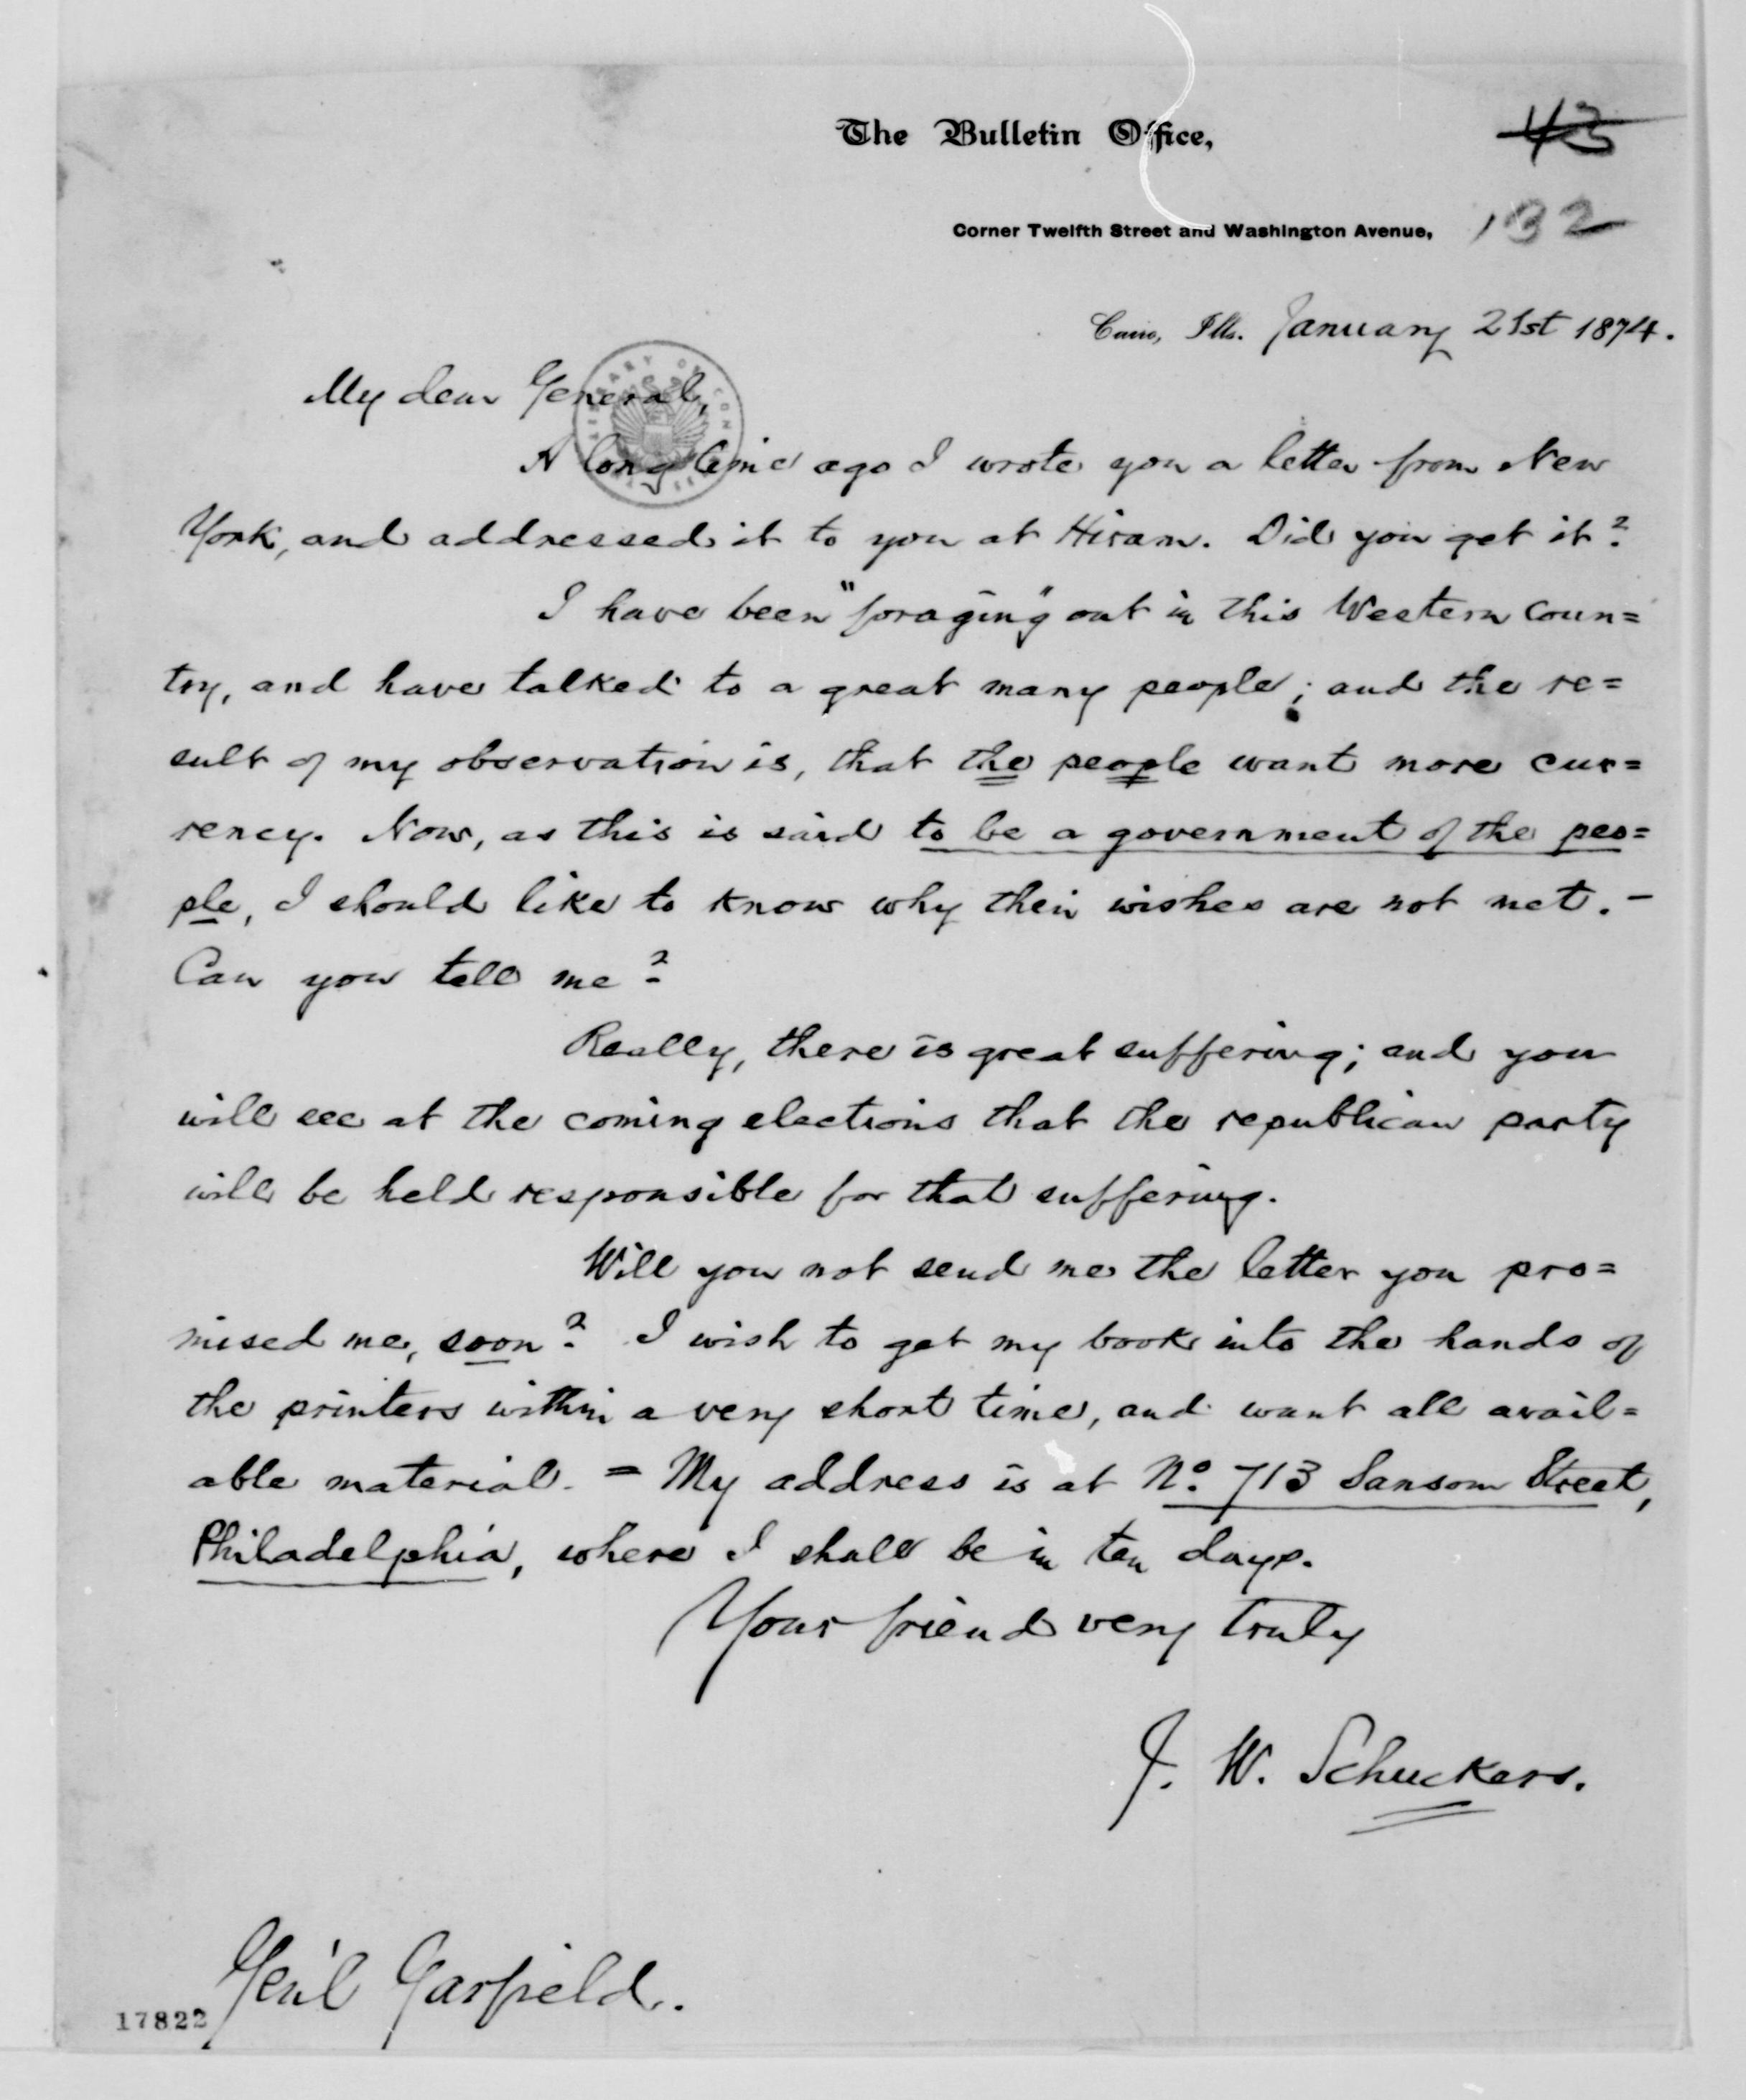 The Bulletin Office,
43
Corner Twelfth Street and Washington Avenue,
132
Cairo, Ills. January 21st 1874.
My dear General,
A long time ago I wrote you a letter from New
York, and addressed it to you at Hiram. Did you get it?
I have been "foraging" out in this Western coun=
try, and have talked to a great many people; and the re=
sult of my observation is, that the people want more cur=
rency. Now, as this is said to be a government of the peo=
ple, I should like to know why their wishes are not met. -
Can you tell me?
Really, there is great suffering; and you
will see at the coming elections that the republican party
will be held responsible for that suffering.
Will you not send me the letter you pro=
mised me, soon? I wish to get my book into the hands of
the printers within a very short time, and want all avail=
able material. = My address is at No. 713 Sansom Street,
Philadelphia, where I shall be in ten days.
Your friend very truly
J. W. Schuckers.
Gen'l Garfield.
17822